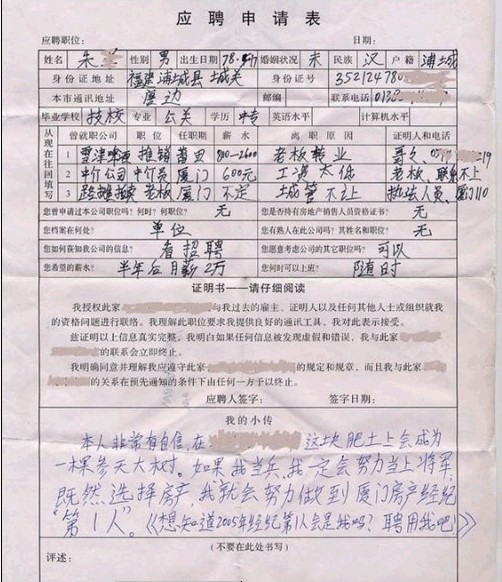 应聘申请表
应聘职位： 日期：
姓名 朱 性别 男 出生日期 78. 婚姻状况 未 民族 汉 户籍 浦城
身份证地址 福建浦城县城关 身份证号 352124780
本市通讯地址 厦边 邮编 联系电话
毕业学校 技校 专业 公关 学历 中专 英语水平 计算机水平
从现在往回填写 曾就职公司 职位 任职期 薪水 离职原因 证明人和电话
1 雪津啤酒 推销 莆田 800-2600 老板转业 哥々
2 中介公司 中介员 厦门 600元 工资太低 老板、联系不上
3 老板 厦门 不定 城管不让 执法人员、厦门110
您曾申请过本公司职位吗？何时？何职位？ 无 您是否持有房地产销售人员资格证书？ 无
您档案在何处？ 单位 您有熟人在此公司吗？其姓名和职位？ 无
您如何获知我公司的信息？ 看招聘 您愿意考虑公司的其它职位吗？ 可以
您希望的薪水？ 半年后月薪2万 您何时可以上班？ 随时
证明书——请仔细阅读
我授权此家 与我过去的雇主、证明人以及任何其他人士或组织就我
的资格问题进行联络。我理解此职位要求我提供良好的通讯工具。我对此表示接受。
兹证明以上信息真实完整。我明白如果任何信息被发现虚假和错误，我与此家
的联系会立即终止。
我明确同意并理解我应遵守此家 的规定和规章，而且我与此家
的关系在预先通知的条件下由任何一方予以终止。
应聘人签字： 签字日期：
我的小传
本人非常有自信，在 这块肥土上会成为
一棵参天大树。如果我当兵，我一定会努力当上将军，
既然选择房产，我就会努力做到厦门房产经纪
“第1人”。《想知道2005年经纪第1人会是我吗？聘用我吧！》
（不要在此处书写）
评述：